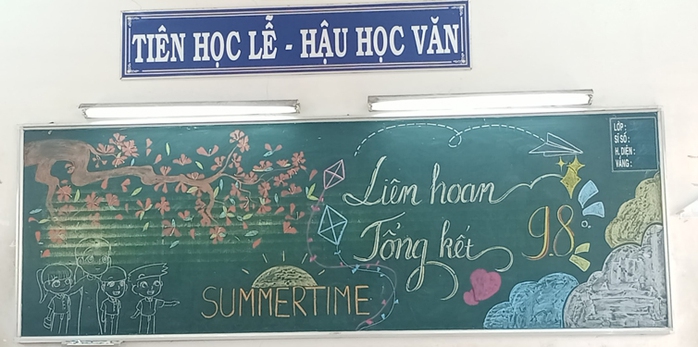 TIÊN HỌC LỄ - HẬU HỌC VĂN
LỚP :
SĨ SỐ :
H. DIỆN :
VẮNG :
Liên hoan
Tổng kết 9.8
SUMMERTIME